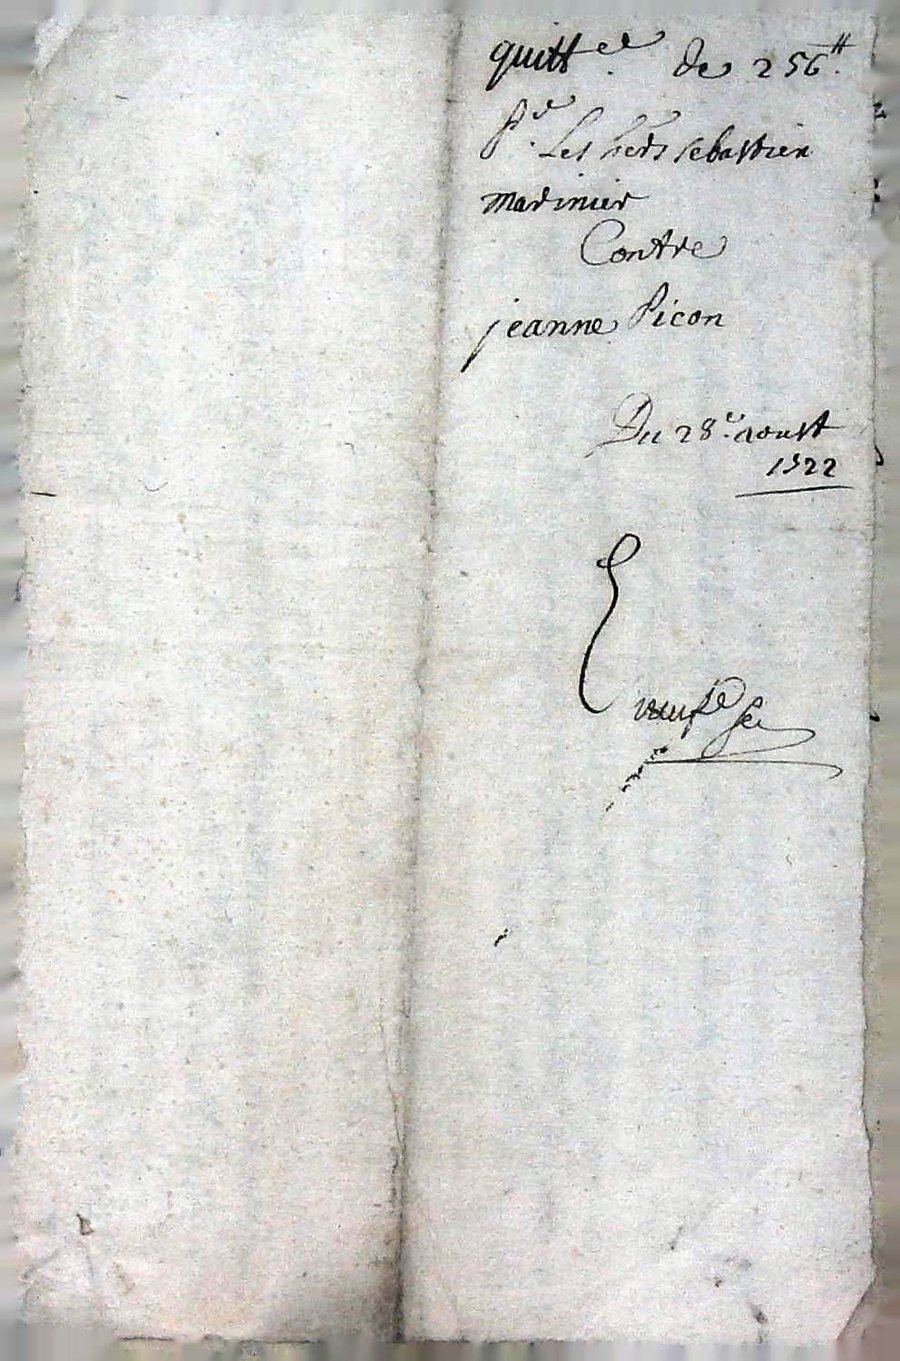 quitt.ce de 256 ₶.
p.r Les heds sebastien
marinier
Contre
jeanne Picon
Du 28.e aoust
1722
neuf